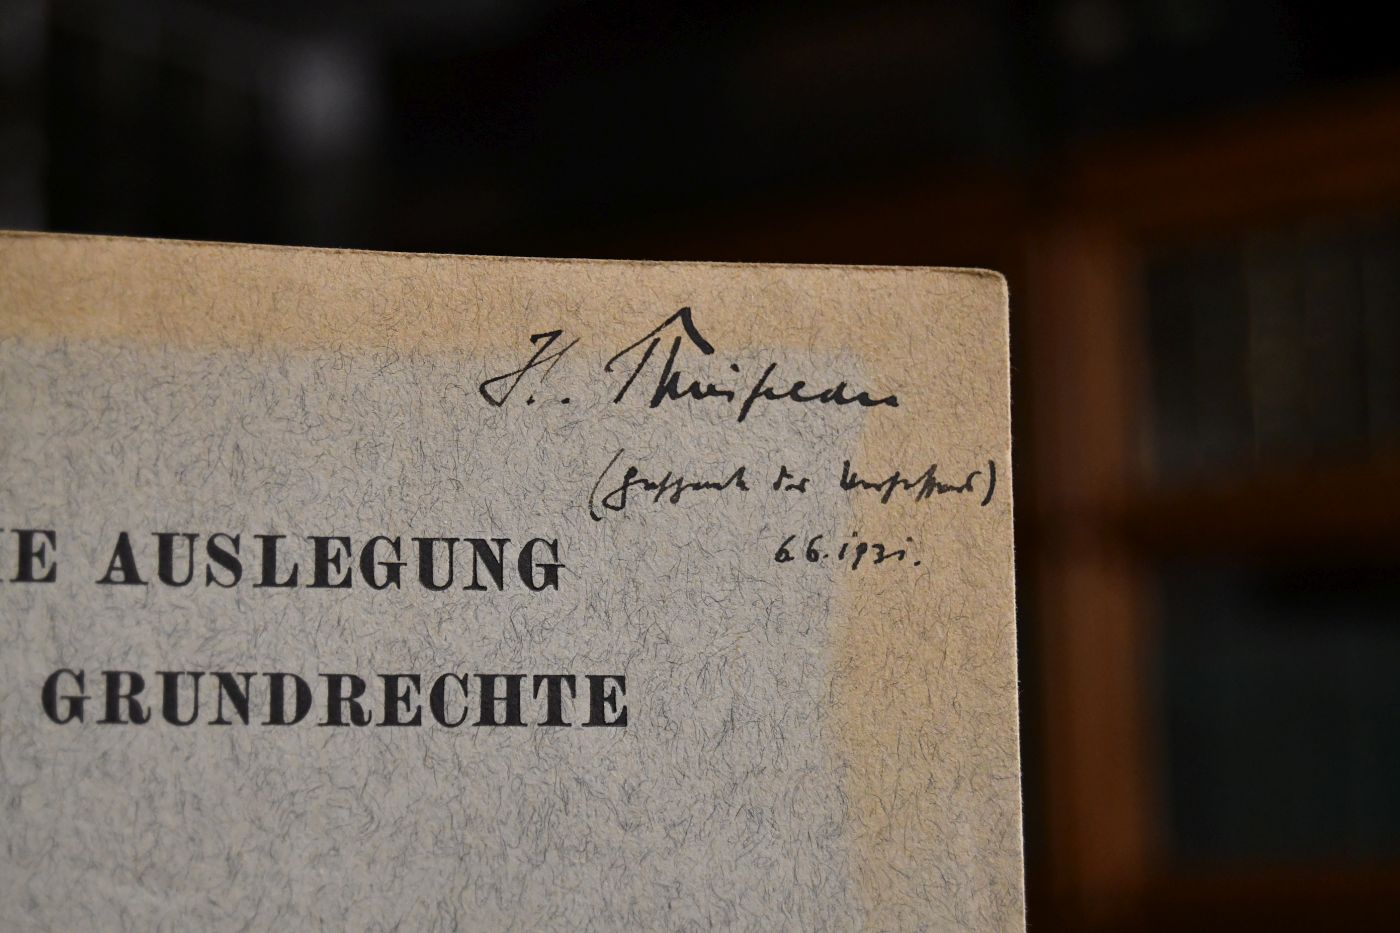 H. Thmifelder
(Geschenk des Verfassers)
6.6.1931.
IE AUSLEGUNG
GRUNDRECHTE